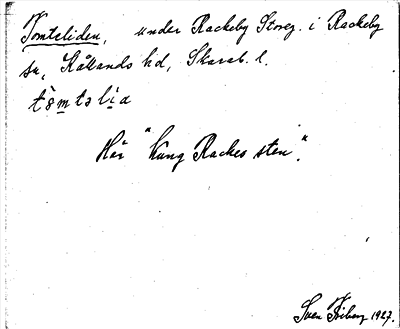 Tomteliden, under Rackeby Storeg. i Rackeby
sn, Kållands hd, Skarab. l.
tòmtəlìa
Här "Kung Rackes sten".
Sven Friberg 1927.